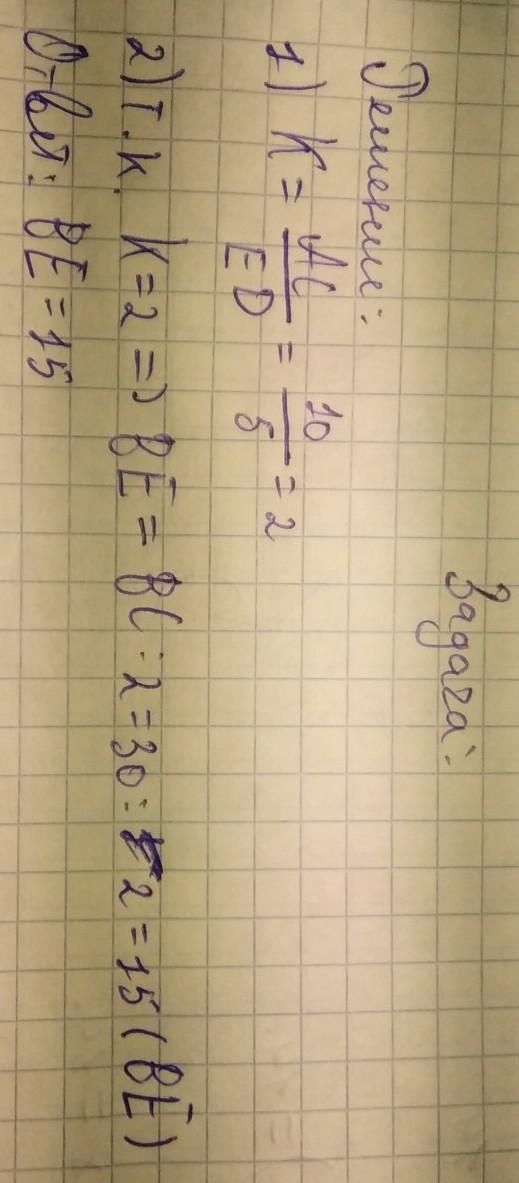 Задача:
Решение:
1) K = AC/ED = 10/5 = 2
2) Т.к. K=2 => BE = BC : 2 = 30 : 2 = 15 (BE)
Ответ: BE = 15